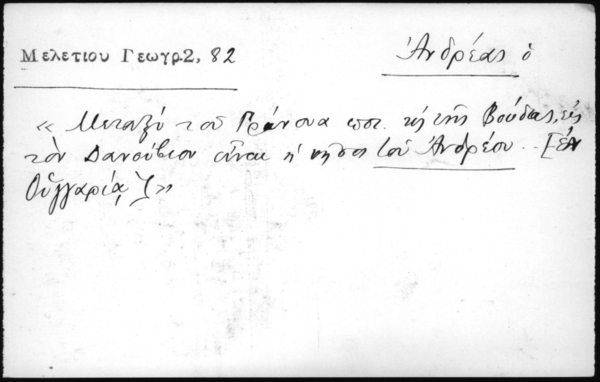 Μελετίου Γεωγρ.2, 82
Ἀνδρέας ὁ
« Μεταξὺ τοῦ Γράνουα τῆς Βούδας, εἰς
τὸν Δανούβιον εἶναι ἡ νῆσος τοῦ Ἀνδρέου... [ἐν
Οὑγγαρίᾳ »